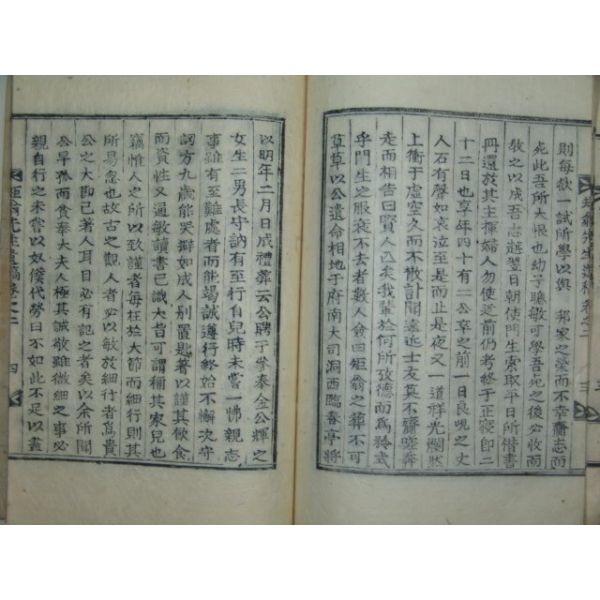 則每欲一試所學以與 邦家之榮而不幸齎志而
死此吾所大恨也幼子聰敏可學吾死之後必收而
敎之以成吾志翌日朝使門生索取平日所借書
冊還於其主揮婦人勿使近前仍考終于正寢卽二
十二日也享年四十有二公卒之前一日良晛之丈
人石有聲如哀泣至是而止是夜又一道祥光爛然
上衝于虛空久而不散訃聞遠近士友莫不齎嗟奔
走而相告曰賢人亡矣我輩於何所攷德而爲矜式
乎門生之服衰不去者數人僉曰短翁之葬不可
草草以公遺命相地于府南大司洞西臨春亭將
以明年二月日成禮葬云公聘 子拳泰全公輝之
女生二男長守訥有至行自兒時未嘗一怫親志
事雖有至難處者而能竭誠遵行終始不懈次守
訶方九歲能哭擗如成人別置匙箸以謹其飮食
而資性又過敏讀書已識大旨可謂稱其家兒也
竊惟人之所以致謹者每在於大節而細行則其
所易忽也故古之觀人者必以敏於細行者爲貴
公之大卽已著人耳目必有記之者矣以余所聞
公早孤而貧奉大夫人極其誠敬雖微細之事必
親自行之未嘗以奴僕代勞曰不如此不足以盡
先生遺稿卷之二 四